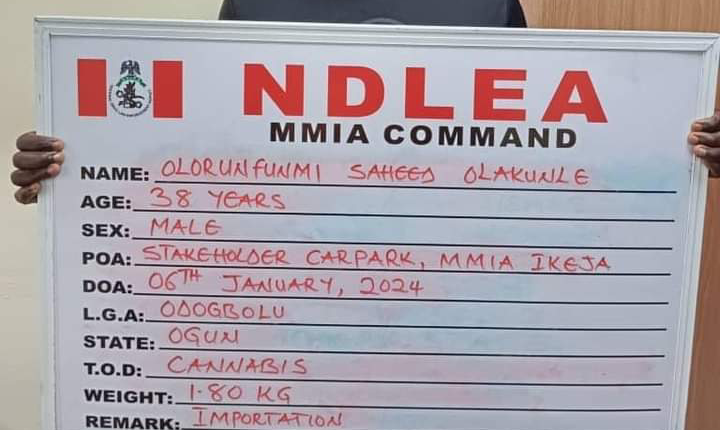 NDLEA
MMIA COMMAND
NAME: OLORUNFUNMI SAHEED OLAKUNLE
AGE: 38 YEARS
SEX: MALE
POA: STAKEHOLDER CARPARK, MMIA IKEJA
DOA: 06TH JANUARY, 2024
L.G.A: ODOGBOLU
STATE: OGUN
T.O.D: CANNABIS
WEIGHT: 1.80 KG
REMARK: IMPORTATION